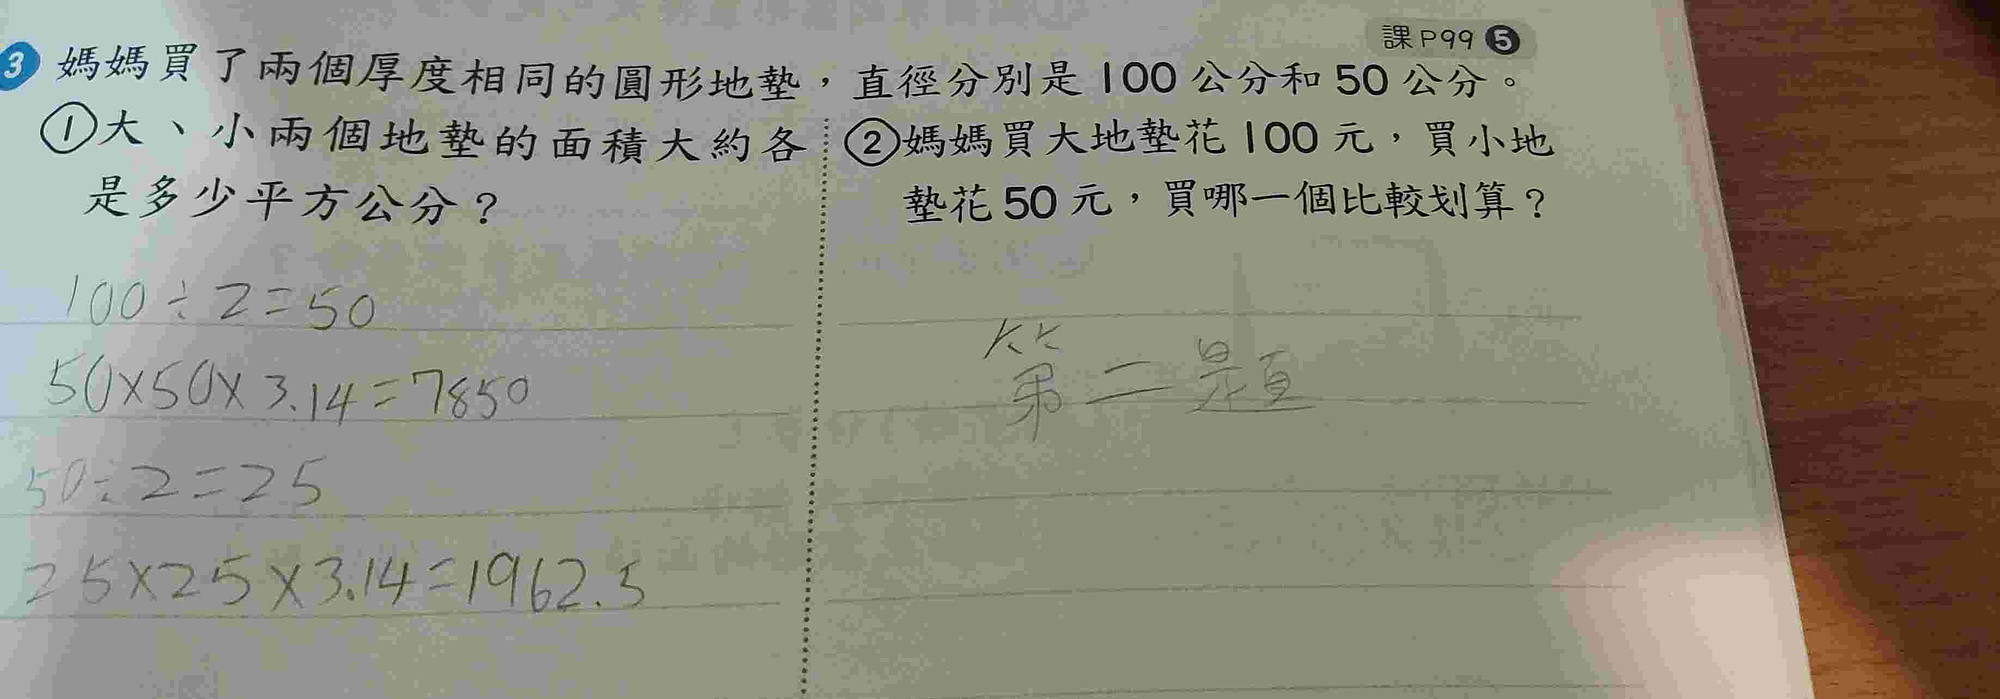 課P99 5
3 媽媽買了兩個厚度相同的圓形地墊，直徑分別是100公分和50公分。
①大、小兩個地墊的面積大約各
是多少平方公分？
100÷2=50
50×50×3.14=7850
50÷2=25
25×25×3.14=1962.5
②媽媽買大地墊花100元，買小地
墊花50元，買哪一個比較划算？
第二題